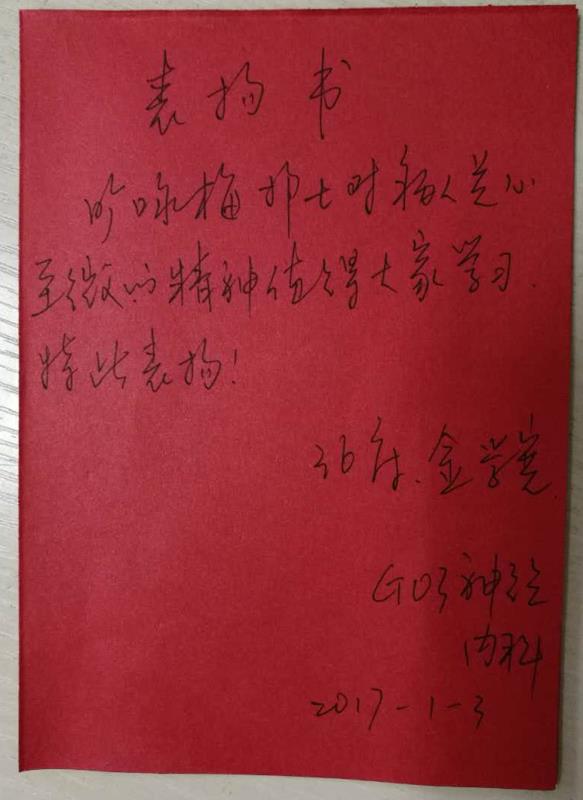 表扬书
咏梅护士对病人关心
至微的精神值得大家学习.
特此表扬!
36床.金学宪
G03神经
内科
2017-1-3